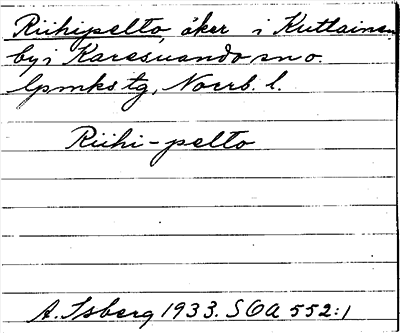 Riihipelto, åker i Kuttainen
by i Karesuando sn o.
lpmks tg, Norrb. l.
Riihi-pelto
A. Isberg 1933. SOA 552:1